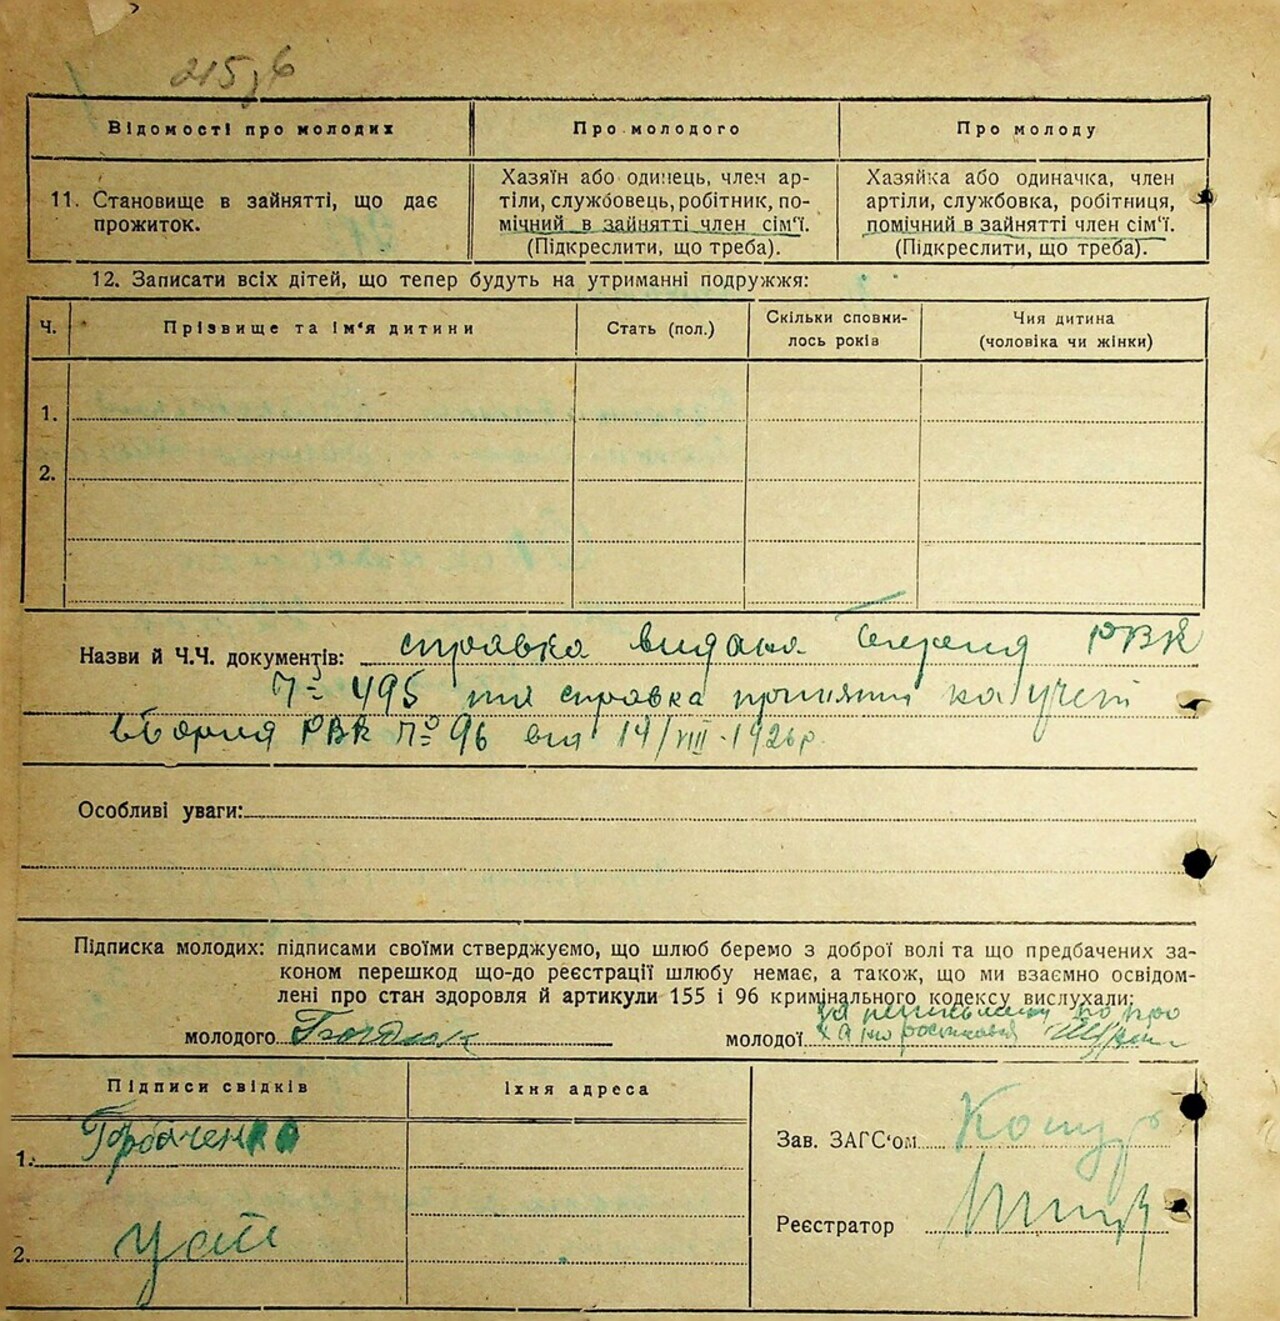 215
Відомості про молодих
Про молодого
Про молоду
11. Становище в зайнятті, що дає
прожиток.
Хазяїн або одинець, член ар-
тіли, службовець, робітник, по-
мічний в зайнятті член сім'ї.
(Підкреслити, що треба).
Хазяйка або одиначка, член
артіли, службовка, робітниця,
помічний в зайнятті член сім'ї.
(Підкреслити, що треба).
12. Записати всіх дітей, що тепер будуть на утриманні подружжя:
Ч.
Прізвище та ім'я дитини
Стать (пол.)
Скільки сповни-
лось років
Чия дитина
(чоловіка чи жінки)
1.
2.
Назви й Ч.Ч. документів: справка видана РВК
№ 495 справка на учет
РВК № 96 від 14/VIII-1926 р.
Особливі уваги:
Підписка молодих: підписами своїми стверджуємо, що шлюб беремо з доброї волі та що предбачених за-
коном перешкод що-до реєстрації шлюбу немає, а також, що ми взаємно освідом-
лені про стан здоровля й артикули 155 і 96 кримінального кодексу вислухали:
молодого
молодої
Підписи свідків
Їхня адреса
1. Горбаченко
2.
Зав. ЗАГС'ом
Реєстратор